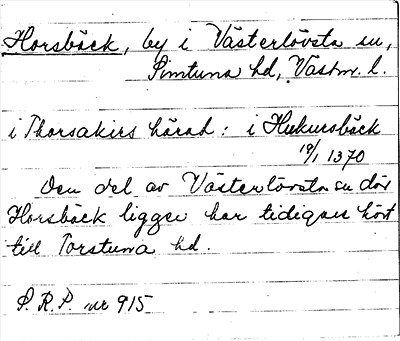 Horsbäck, by i Västerlövsta sn,
Simtuna hd, Västm. l.
i Thorsakirs härad: i Hukursbäck
19/1 1370
Den del av Västerlövsta sn där
Horsbäck ligger har tidigare hört
till Torstuna hd.
S.R.P. nr 915